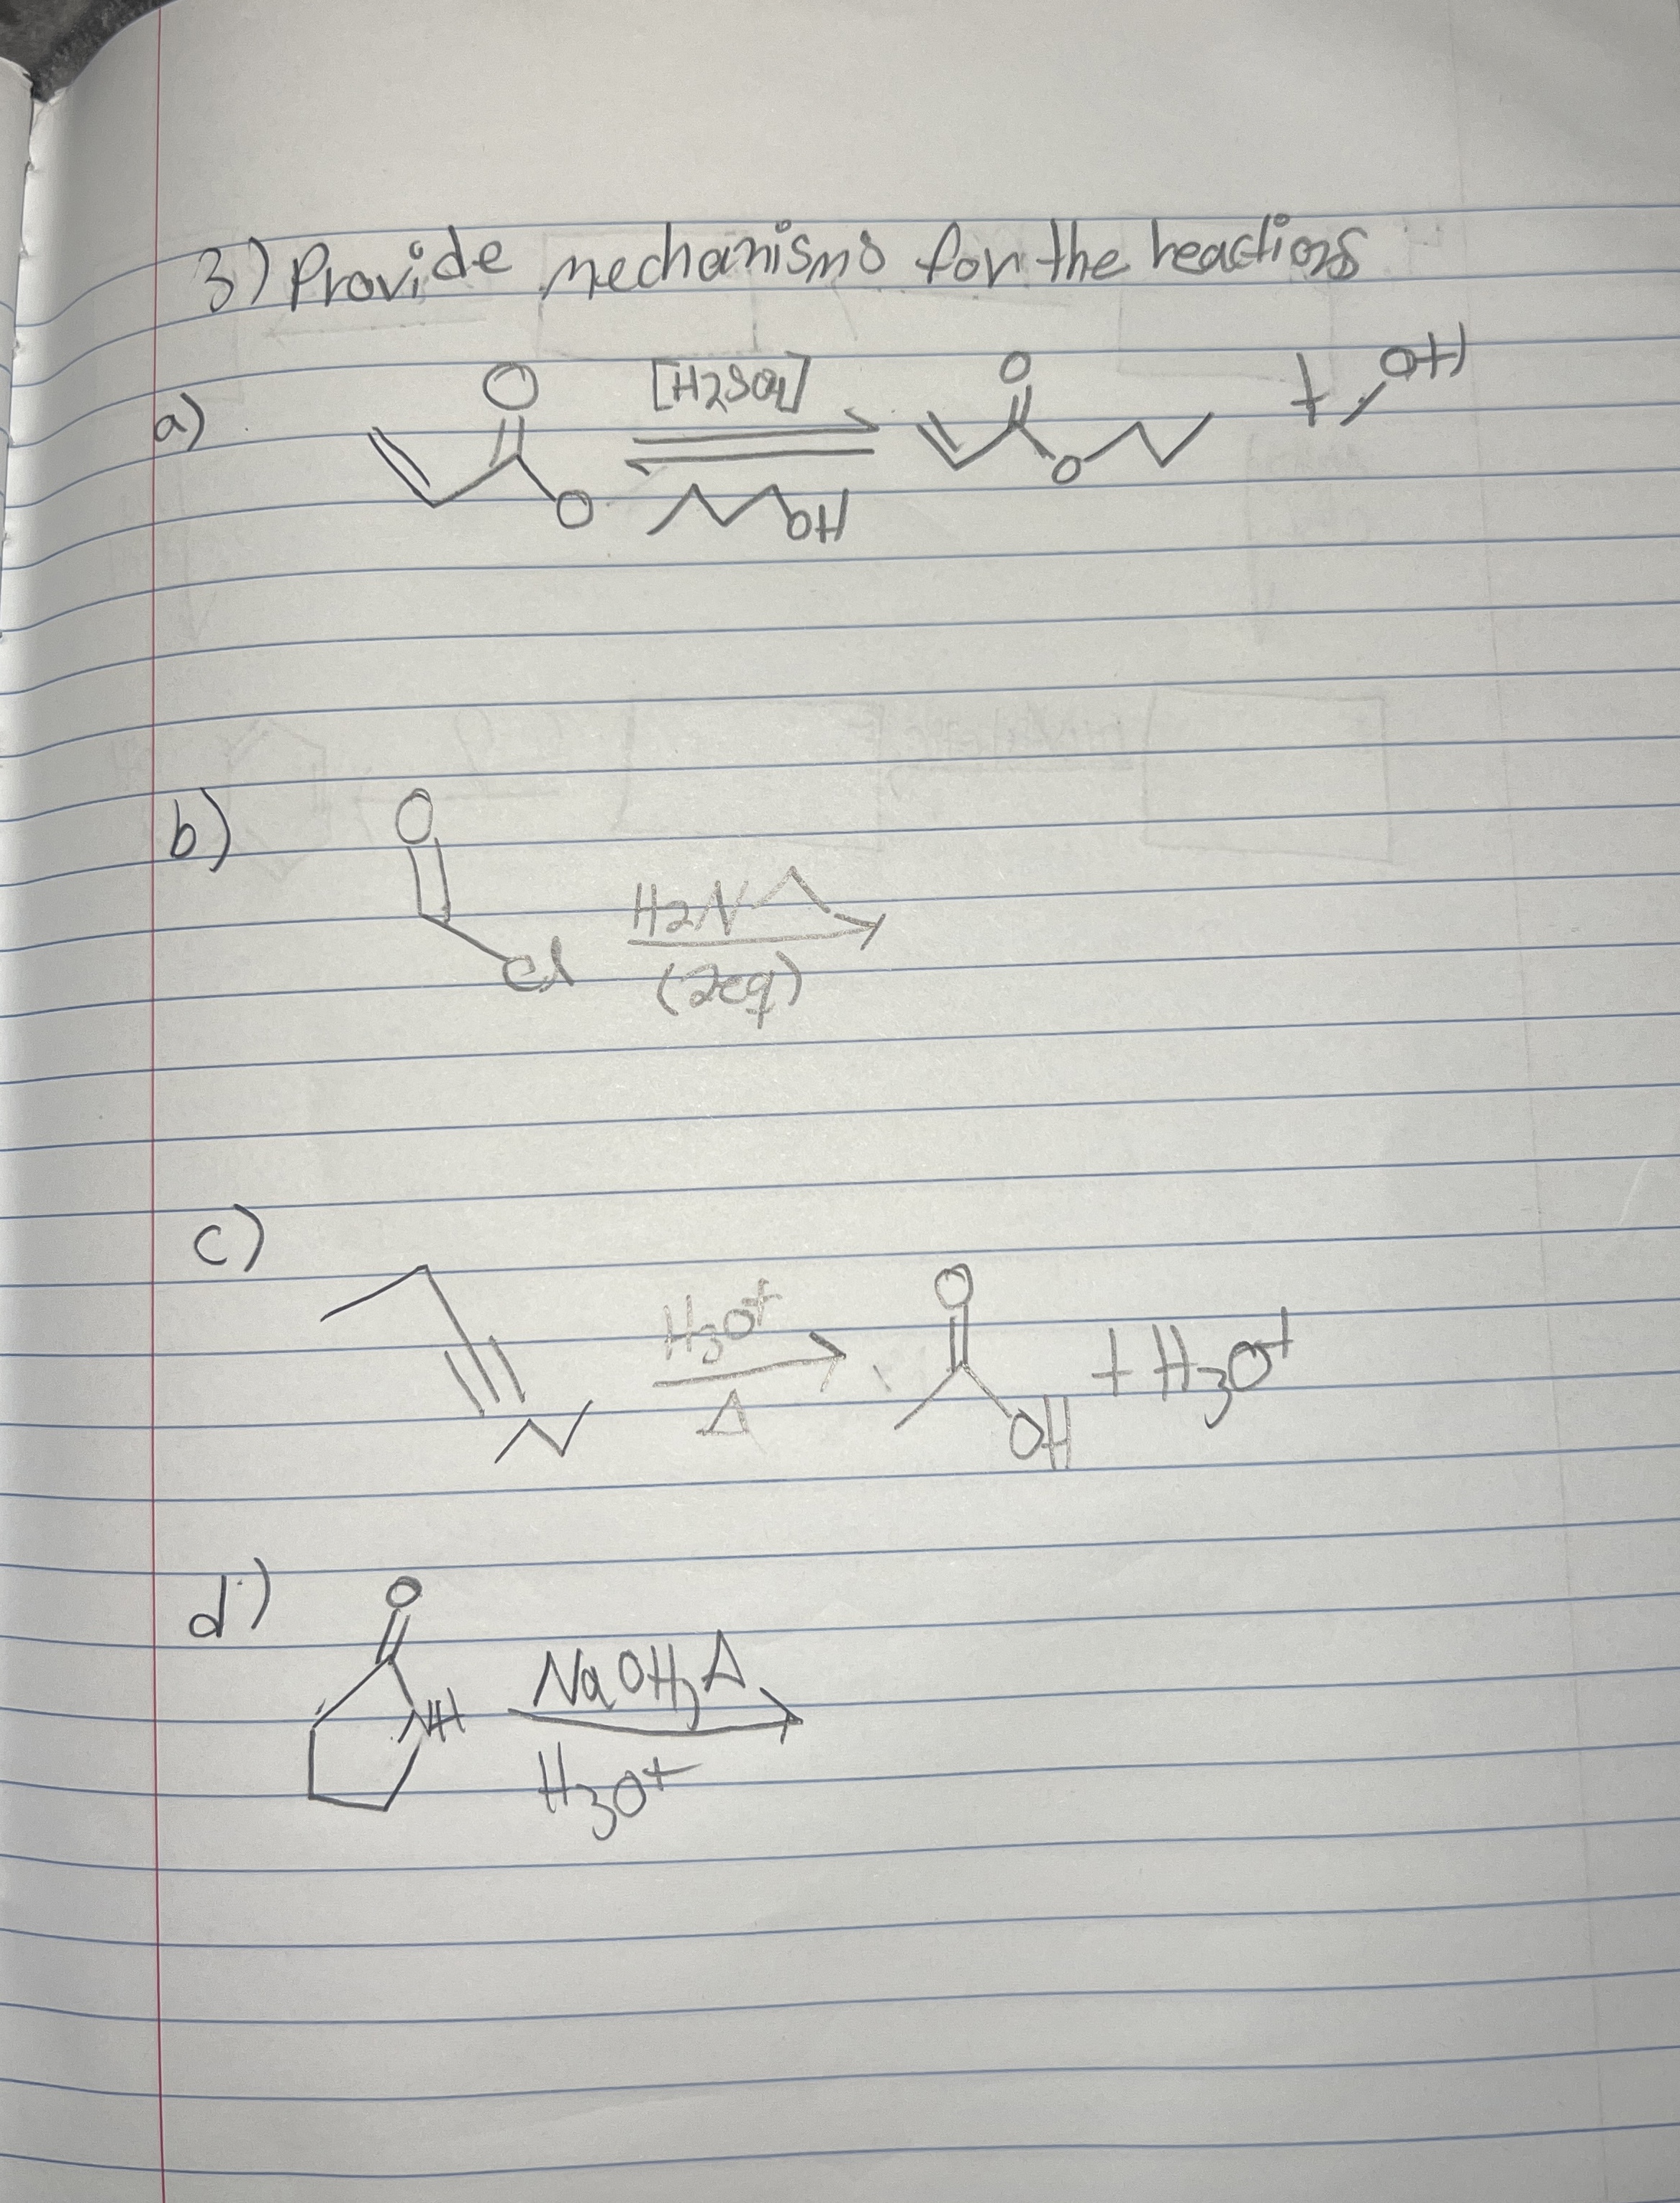 3) Provide mechanisms for the reactions
a) O [H2SO4] O + OH
O OH O
b) O H2N
Cl (2eq)
c) N H3O+ Δ O OH + H3O+
d) O NH NaOH, Δ
H3O+